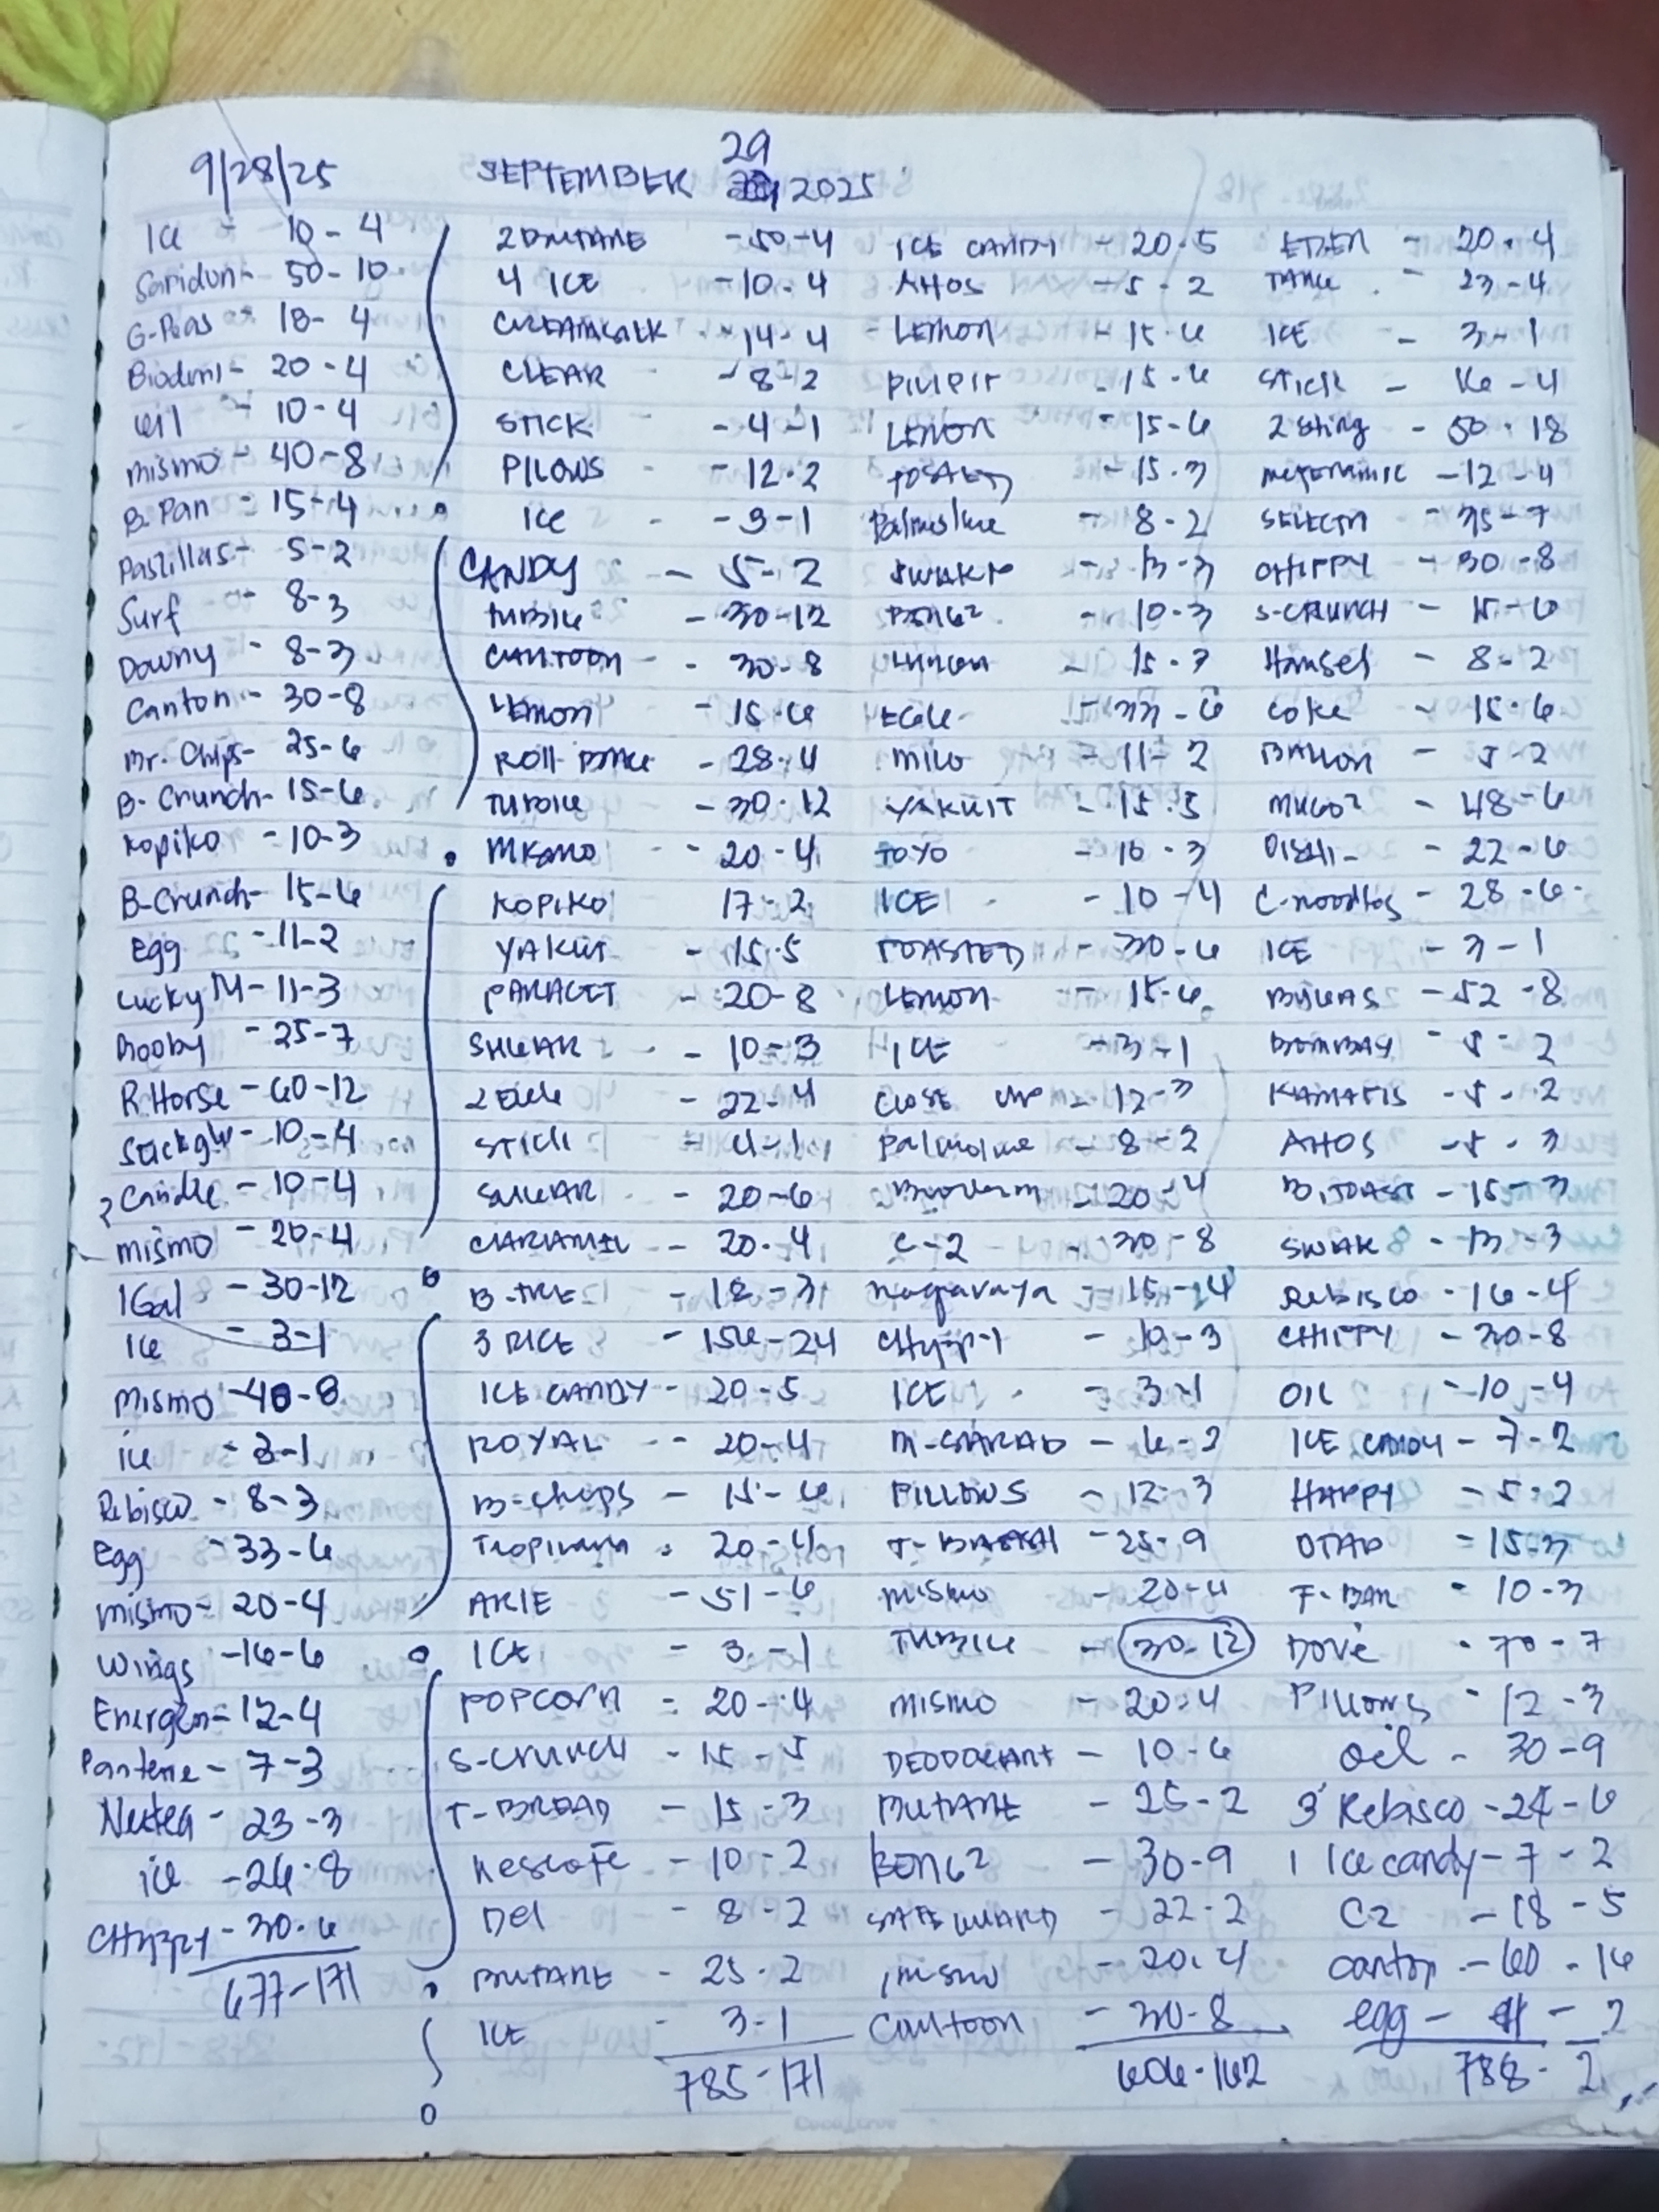 9/28/25
Ice - 10-4
Saridon - 50-10
G-Peas - 18-4
Bioderm - 20-4
Oil - 10-4
mismo - 40-8
B-Pan - 15-4
Pastillas - 5-2
Surf - 8-3
Downy - 8-3
Canton - 30-8
Mr. Chips - 25-6
B-Crunch - 15-6
Kopiko - 10-3
B-Crunch - 15-6
Egg - 11-2
Lucky M - 11-3
Booby - 25-7
R.Horse - 60-12
- 10-4
2 Candle - 10-4
mismo - 20-4
1Gal - 30-12
Ice - 3-1
Mismo - 40-8
ice - 3-1
Rebisco - 8-3
Egg - 33-6
mismo - 20-4
Wings - 16-6
Energen - 12-4
Pantene - 7-3
Nestea - 23-3
ice - 26-8
CHyppy - 30-6
677-171
SEPTEMBER 29 2025
2 BUTANE - 50-4
4 ICE - 10-4
CREAMSILK - 14-4
CLEAR - 8-2
STICK - 4-1
PILOWS - 12-2
ICE - 3-1
CANDY - 5-2
TUBIG - 30-12
CANTOON - 30-8
LEMON - 15-6
ROLL - 28-4
TUBIG - 30-12
MISMO - 20-4
KOPIKO 17-2
YAKUT - 15-5
PARACET - 20-8
SHUGAR - 10-3
2 EGG - 22-4
STICK - 4-1
SHUGAR - 20-6
CARAMEL - 20-4
B-TKE - 18-3
3 RICE - 156-24
ICE CANDY - 20-5
ROYAL - 20-4
B-chips - 15-6
Tropicana - 20-4
ARIE - 51-6
ICE - 3-1
POPCORN - 20-4
S-CRUNCH - 15-5
T-BREAD - 15-3
Nescafe - 10-2
Del - 8-2
BUTANE - 25-2
ICE - 3-1
785-171
ICE CANDY - 20-5
AHOS - 5-2
LEMON - 15-6
PILIPIT - 15-6
LEMON - 15-6
TOSAED - 15-3
Palmolive - 8-2
SWAK - 13-3
BENG2 - 10-3
- 15-7
EGG - 33-6
MILO - 11-2
YAKULT - 15-5
TOYO - 16-3
ICE - 10-4
TOASTED - 30-6
LEMON - 15-6
ICE - 3-1
CLOSE UP - 12-3
Palmolive - 8-2
Bioderm - 20-4
C-2 - 30-8
Nagaraya - 15-4
CHyppy - 10-3
ICE - 3-1
M-SARAP - 6-2
PILLOWS - 12-3
T-BRUSH - 25-9
MISMO - 20-4
TUBIG - 30-12
MISMO - 20-4
DEODORANT - 10-6
BUTANE - 25-2
BENG2 - 30-9
SAFEGUARD - 22-2
MISMO - 20-4
Cantoon - 30-8
606-162
EDEN - 20-4
TANG - 23-4
ICE - 3-1
STICK - 16-4
2 Sting - 50-18
- 12-4
SELECTA - 35-7
CHIPPY - 30-8
S-CRUNCH - 15-6
Hansel - 8-2
Coke - 15-6
BALLON - 5-2
MUGO2 - 48-6
OISHI - 22-6
C-noodles - 28-6
ICE - 3-1
BUGAS - 52-8
BOMBAY - 5-2
KAMATIS - 5-2
AHOS - 5-3
B.TOAST - 15-3
SWAK - 13-3
Rebisco - 16-4
CHIPPY - 30-8
OIL - 10-4
ICE CANDY - 7-2
HAPPY - 5-2
OTAP - 15-3
F-BAR - 10-3
DOVE - 70-7
PILLOWS - 12-3
Oil - 30-9
3 Rebisco - 24-6
1 Ice candy - 7-2
C2 - 18-5
canton - 60-16
egg - 11-2
788-2